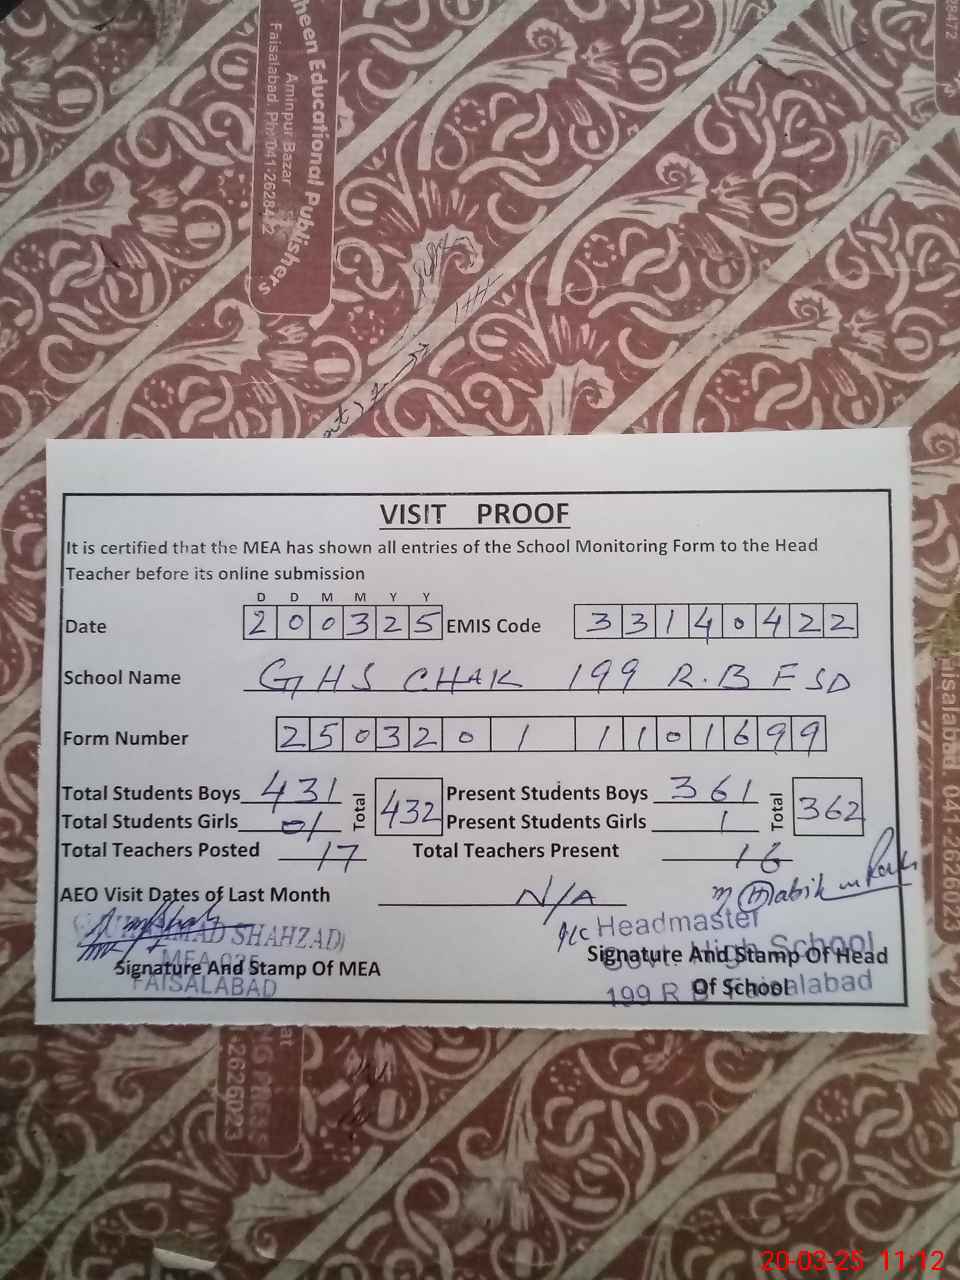 heen Educational Publishers
Aminpur Bazar
Faisalabad. Ph: 041-26284
28472
VISIT PROOF
It is certified that the MEA has shown all entries of the School Monitoring Form to the Head
Teacher before its online submission
D D M M Y Y
Date 2 0 0 3 2 5 EMIS Code 3 3 1 4 0 4 2 2
School Name GHS CHAK 199 R.B FSD
Form Number 2 5 0 3 2 0 1 1 1 0 1 6 9 9
Total Students Boys 431 Total 432 Present Students Boys 361 Total 362
Total Students Girls 01 Present Students Girls 1
Total Teachers Posted 17 Total Teachers Present 16
AEO Visit Dates of Last Month N/A
SHAHZAD
MEA
FAISALABAD
Signature And Stamp Of MEA
I/C Headmaster
Govt. High School
199 R B Faisalabad
Signature And Stamp Of Head
Of School
aisalabad. 041-2626023
2626023
20-03-25 11:12